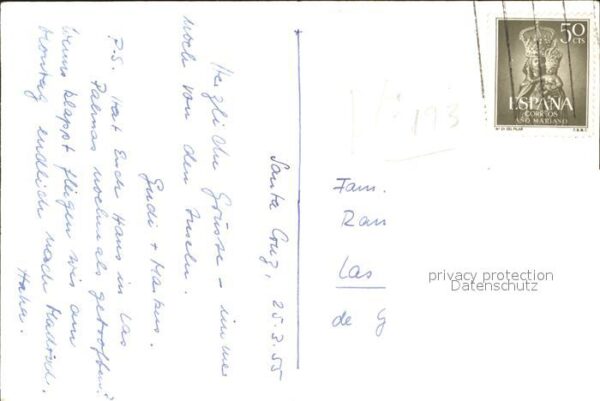 Santa Cruz, 25.3.55
Herzliche Grüsse - immer
noch von den Inseln.
Gudi + Markus.
P.S. Hat Ende Hans in Las
Palmas nochmals getroffen?
Wenns klappt fliegen wir am
Montag endlich nach Madrid.
Haha.
Fam.
Ran
Las
de G
193
50
CTS
ESPAÑA
CORREOS
AÑO MARIANO
privacy protection
Datenschutz